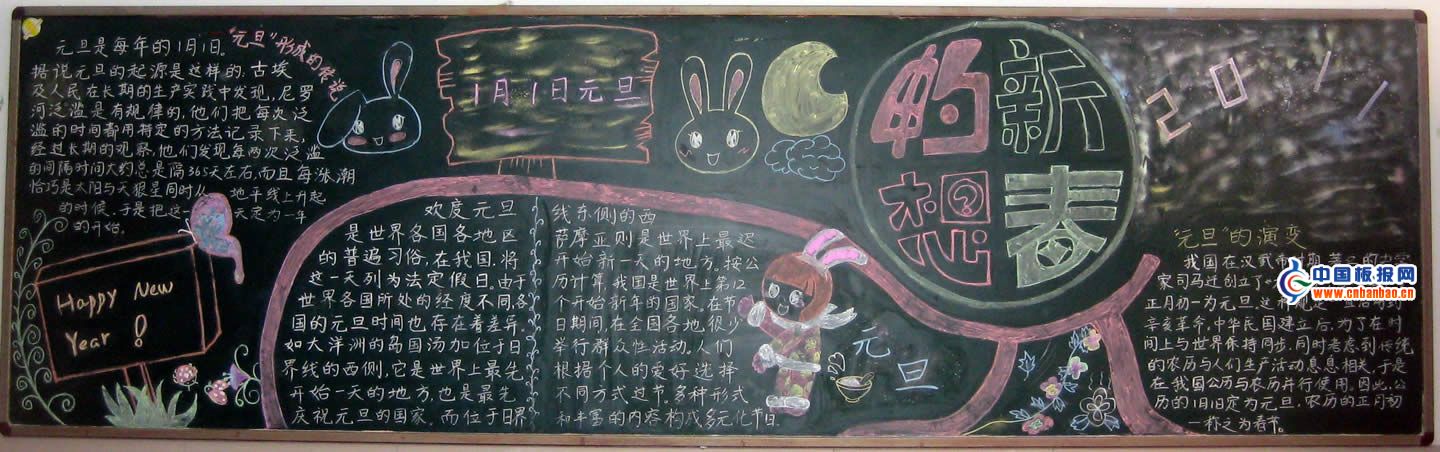 "元旦"形成的传说
元旦是每年的1月1日.
据说元旦的起源是这样的.古埃
及人民在长期的生产实践中发现,尼罗
河泛滥是有规律的,他们把每次泛
滥的时间都用特定的方法记录下来,
经过长期的观察,他们发现每两次泛滥
的间隔时间大约总是隔365天左右,而且每涨潮
恰巧是太阳与天狼星同时从 地平线上升起
的时候.于是把这一 天定为一年
的开始.
Happy New
Year !
1月1日元旦
欢度元旦
是世界各国各地区
的普遍习俗,在我国,将
这一天列为法定假日。由于
世界各国所处的经度不同,各
国的元旦时间也存在着差异,
如大洋洲的岛国汤加位于日
界线的西侧,它是世界上最先
开始一天的地方,也是最先
庆祝元旦的国家.而位于日界
线东侧的西
萨摩亚则是世界上最迟
开始新一天的地方。按公
历计算,我国是世界上第12
个开始新年的国家。在节
日期间,在全国各地,很少
举行群众性活动。人们
根据个人的爱好选择
不同方式过节.多种形式
和丰富的内容构成多元化节日.
元旦
新春
的想
?
2011
"元旦"的演变
我国在汉武帝
家司马迁创立了
正月初一为元旦.这种
辛亥革命,中华民国建立后,为了在时
间上与世界保持同步,同时考虑到传统
的农历与人们生产活动息息相关,于是
在我国公历与农历并行使用。因此,公
历的1月1日定为元旦,农历的正月初
一称之为春节。
中国板报网
www.cnbanbao.cn